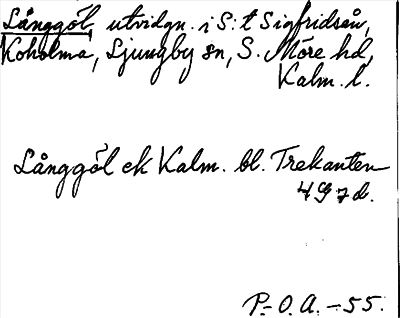 Långgöl, utvidgn. i S:t Sigfridsån,
Koholma, Ljungby sn, S. Möre hd,
Kalm. l.
Långgöl ek Kalm. bl. Trekanten
4 G 7 d.
P.-O. A. -55.